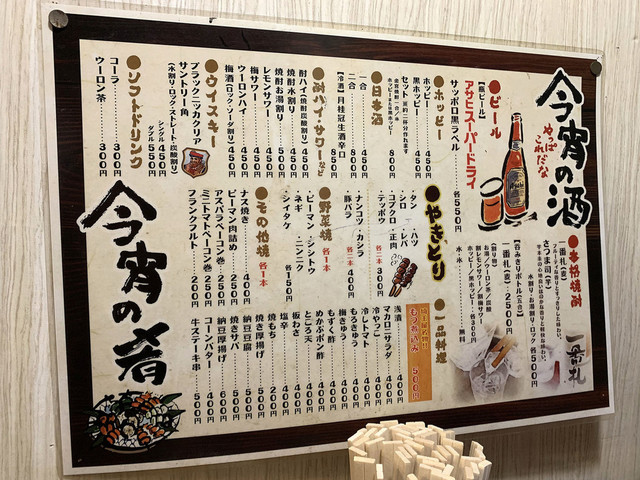 今宵の酒
やっぱこれだな
●ビール
【瓶ビール】
アサヒスーパードライ
サッポロ黒ラベル
各550円
●ホッピー
ホッピー 450円
黒ホッピー 450円
●日本酒
一合 450円
二合 800円
【冷酒】月桂冠生酒辛口 850円
●酎ハイ・サワーなど
酎ハイ(焼酎炭酸割り) 450円
焼酎水割り 450円
焼酎お湯割り 450円
レモンサワー 450円
梅サワー 450円
ウーロンハイ 450円
梅酒(ロック・ソーダ割り) 450円
●ウイスキー
ブラックニッカクリア
サントリー角
(水割り・ロック・ストレート・炭酸割り)
シングル 450円
ダブル 550円
●ソフトドリンク
コーラ 300円
ウーロン茶 300円
●本格焼酎
一番札(麦)
さつま司(芋)
水割り・お湯割り・ロック 各500円
呑みきりボトル(五合)
一番札(麦) 2,500円
(割り物)
水・氷 無料
一番札
●やきとり
・タン・ハツ
・シロ・レバ
・コブクロ・正肉
・テッポウ
各二本 300円
・ナンコツ・カシラ
・豚バラ
各二本 400円
●野菜焼 各1本
・ピーマン・シシトウ
・ネギ・ニンニク
・シイタケ
各150円
●その他焼 各1本
ナス焼き 400円
ピーマン肉詰め 250円
アスパラベーコン巻 250円
ミニトマトベーコン巻 250円
フランクフルト 200円
●一品料理
もつ煮込み 500円
浅漬 400円
マカロニサラダ 400円
冷やっこ 400円
冷しトマト 400円
もろきゅう 400円
梅きゅう 400円
もずく酢 400円
めかぶポン酢 400円
ところ天 400円
板わさ 400円
塩辛 400円
焼もち 200円
焼き厚揚げ 500円
焼きサバ 500円
納豆豆腐 500円
納豆厚揚げ 600円
コーンバター 400円
牛ステーキ串 500円
今宵の肴